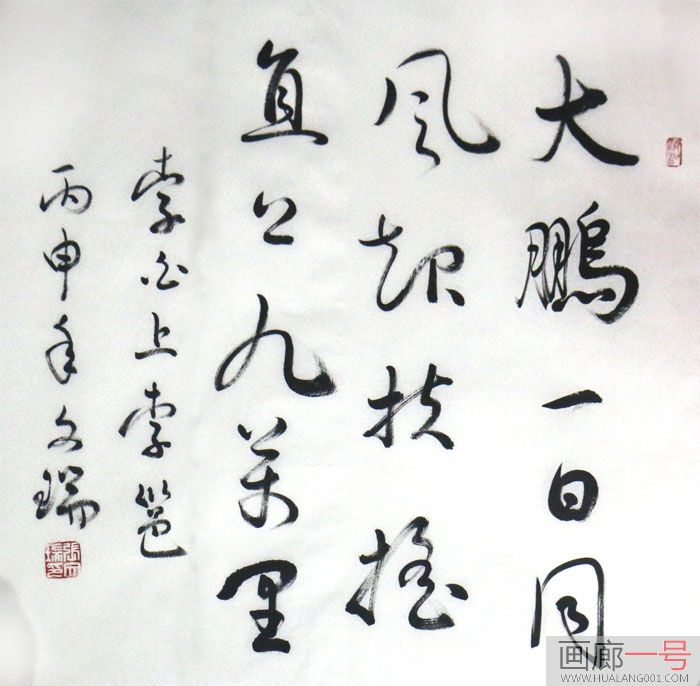 大鵬一日同
風起扶搖
直上九萬里
李白上李邕
丙申年文瑞
張文瑞印
画廊一号
WWW.HUALANG001.COM